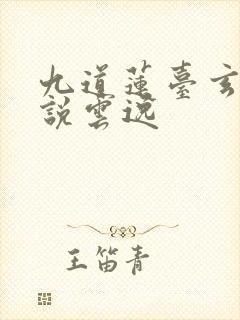 九道蓮臺玄
說雲逸
王笛青